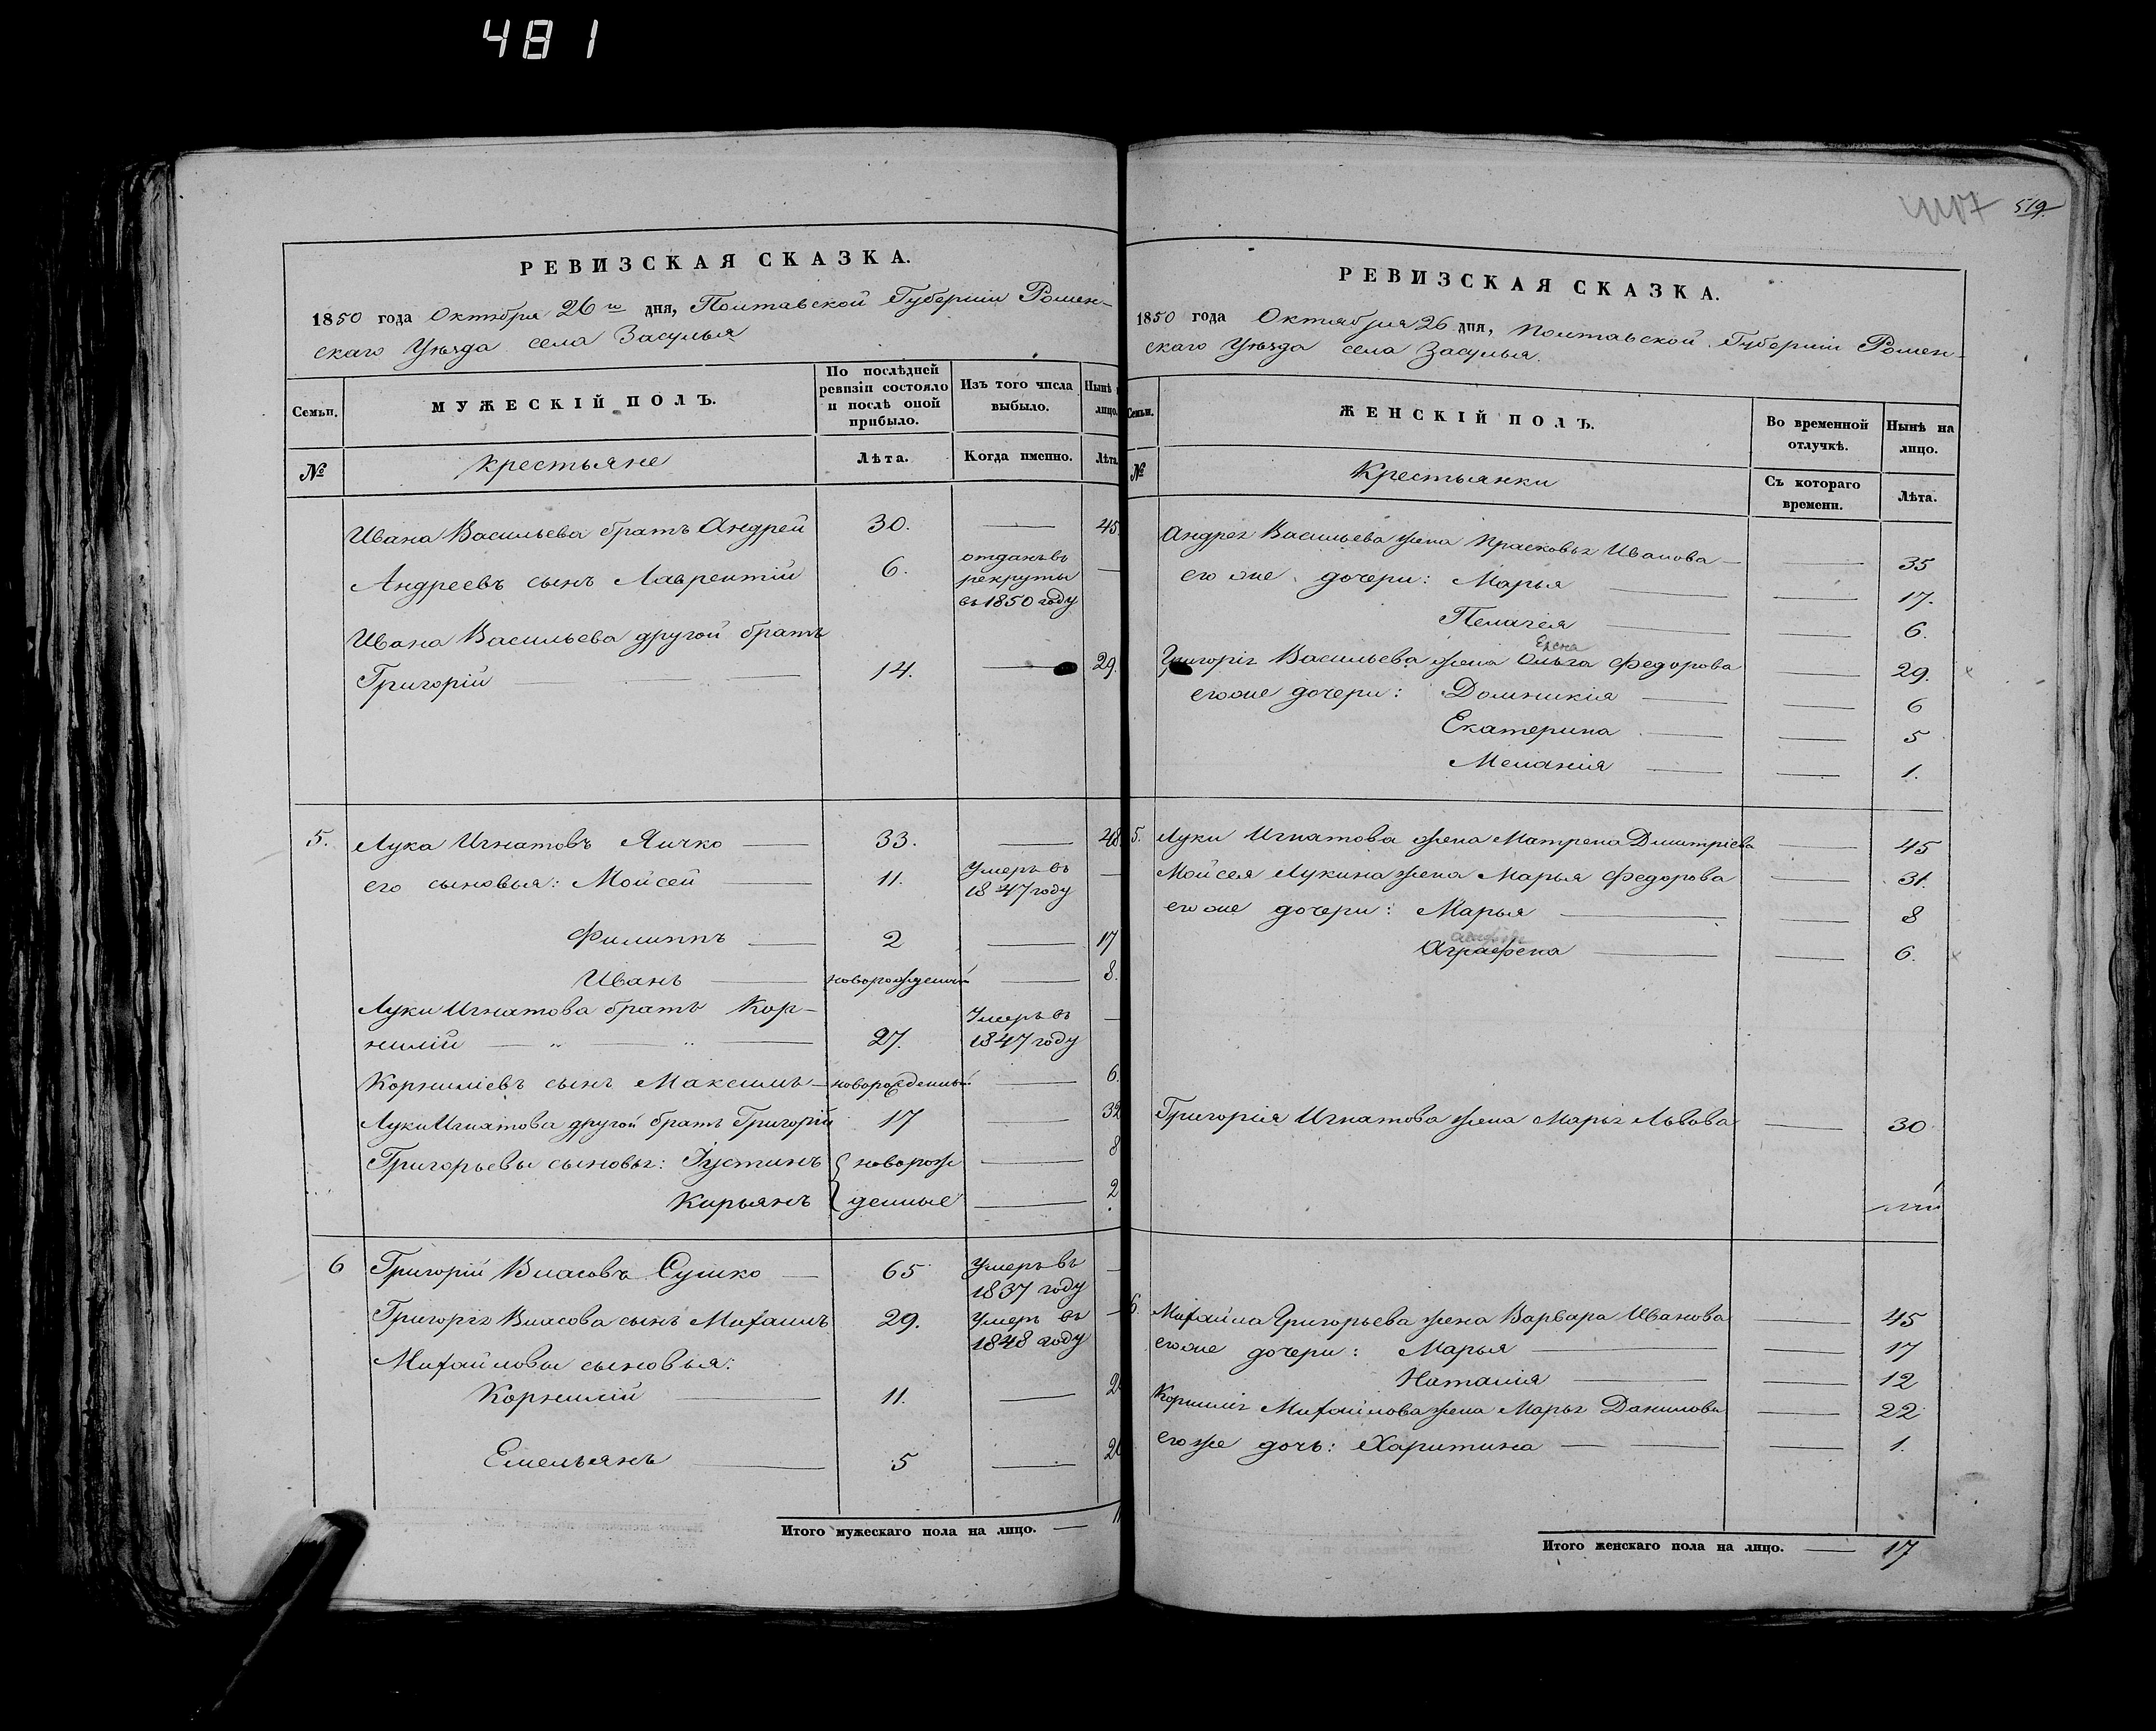 481
519
РЕВИЗСКАЯ СКАЗКА.
1850 года Октября 26го дня, Полтавской Губерніи Ромен-
скаго Уѣзда села Засулья
Семьи.
МУЖЕСКІЙ ПОЛЪ.
По послѣдней ревизіи состояло и послѣ оной прибыло.
Изъ того числа выбыло.
Нынѣ
лицо.
№
Крестьяне
Лѣта.
Когда именно.
Лѣта
Ивана Васильева братъ Андрей 30. — 45.
Андреевъ сынъ Лаврентій 6. отданъ въ рекруты въ 1850 году —
Ивана Васильева другой братъ
Григорій — 14. — 29.
5. Лука Игнатовъ Яичко — 33. — 48
его сыновья: Мойсей — 11. Умеръ въ 1847 году —
Филиппъ — 2 — 17
Иванъ — новорожденный — 8.
Луки Игнатова братъ Кор-
нилій — „ — „ — 27. Умеръ въ 1847 году —
Корниліевъ сынъ Максимъ — новорожденный — 6.
Луки Игнатова другой братъ Григорій 17 — 32
Григорьевы сыновья: Іустинъ { новорож — 8
Кирьянъ } денные — 2
6 Григорій Власовъ Сушко — 65 Умеръ въ 1837 году —
Григорія Власова сынъ Михаилъ 29. Умеръ въ 1848 году —
Михайловы сыновья:
Корнилій — 11. — 2
Емельянъ — 5 — 20
Итого мужескаго пола на лицо. —
РЕВИЗСКАЯ СКАЗКА.
1850 года Октября 26 дня, Полтавской Губерніи Ромен-
скаго Уѣзда села Засулья.
Семьи.
ЖЕНСКІЙ ПОЛЪ.
Во временной отлучкѣ.
Нынѣ на лицо.
№
Крестьянки
Съ котораго времени.
Лѣта.
Андрея Васильева жена Прасковья Иванова — — 35
его же дочери: Марья — — 17.
Пелагея — — 6.
Елена
Григорія Васильева жена Ольга Федорова — 29.
его же дочери: Домникія — — 6
Екатерина — — 5
Меланія — — 1.
5. Луки Игнатова жена Матрена Дмитріева — 45
Мойсея Лукина жена Марья Федорова — 31.
его же дочери: Марья — — 8
Аграфена — — 6.
Григорія Игнатова жена Марья Львова — 30
6. Михайла Григорьева жена Варвара Иванова — 45
его же дочери: Марья — — 17
Наталія — — 12
Корнилія Михайлова жена Марья Данилова — 22
его же дочь: Харитина — — 1.
Итого женскаго пола на лицо. — 17